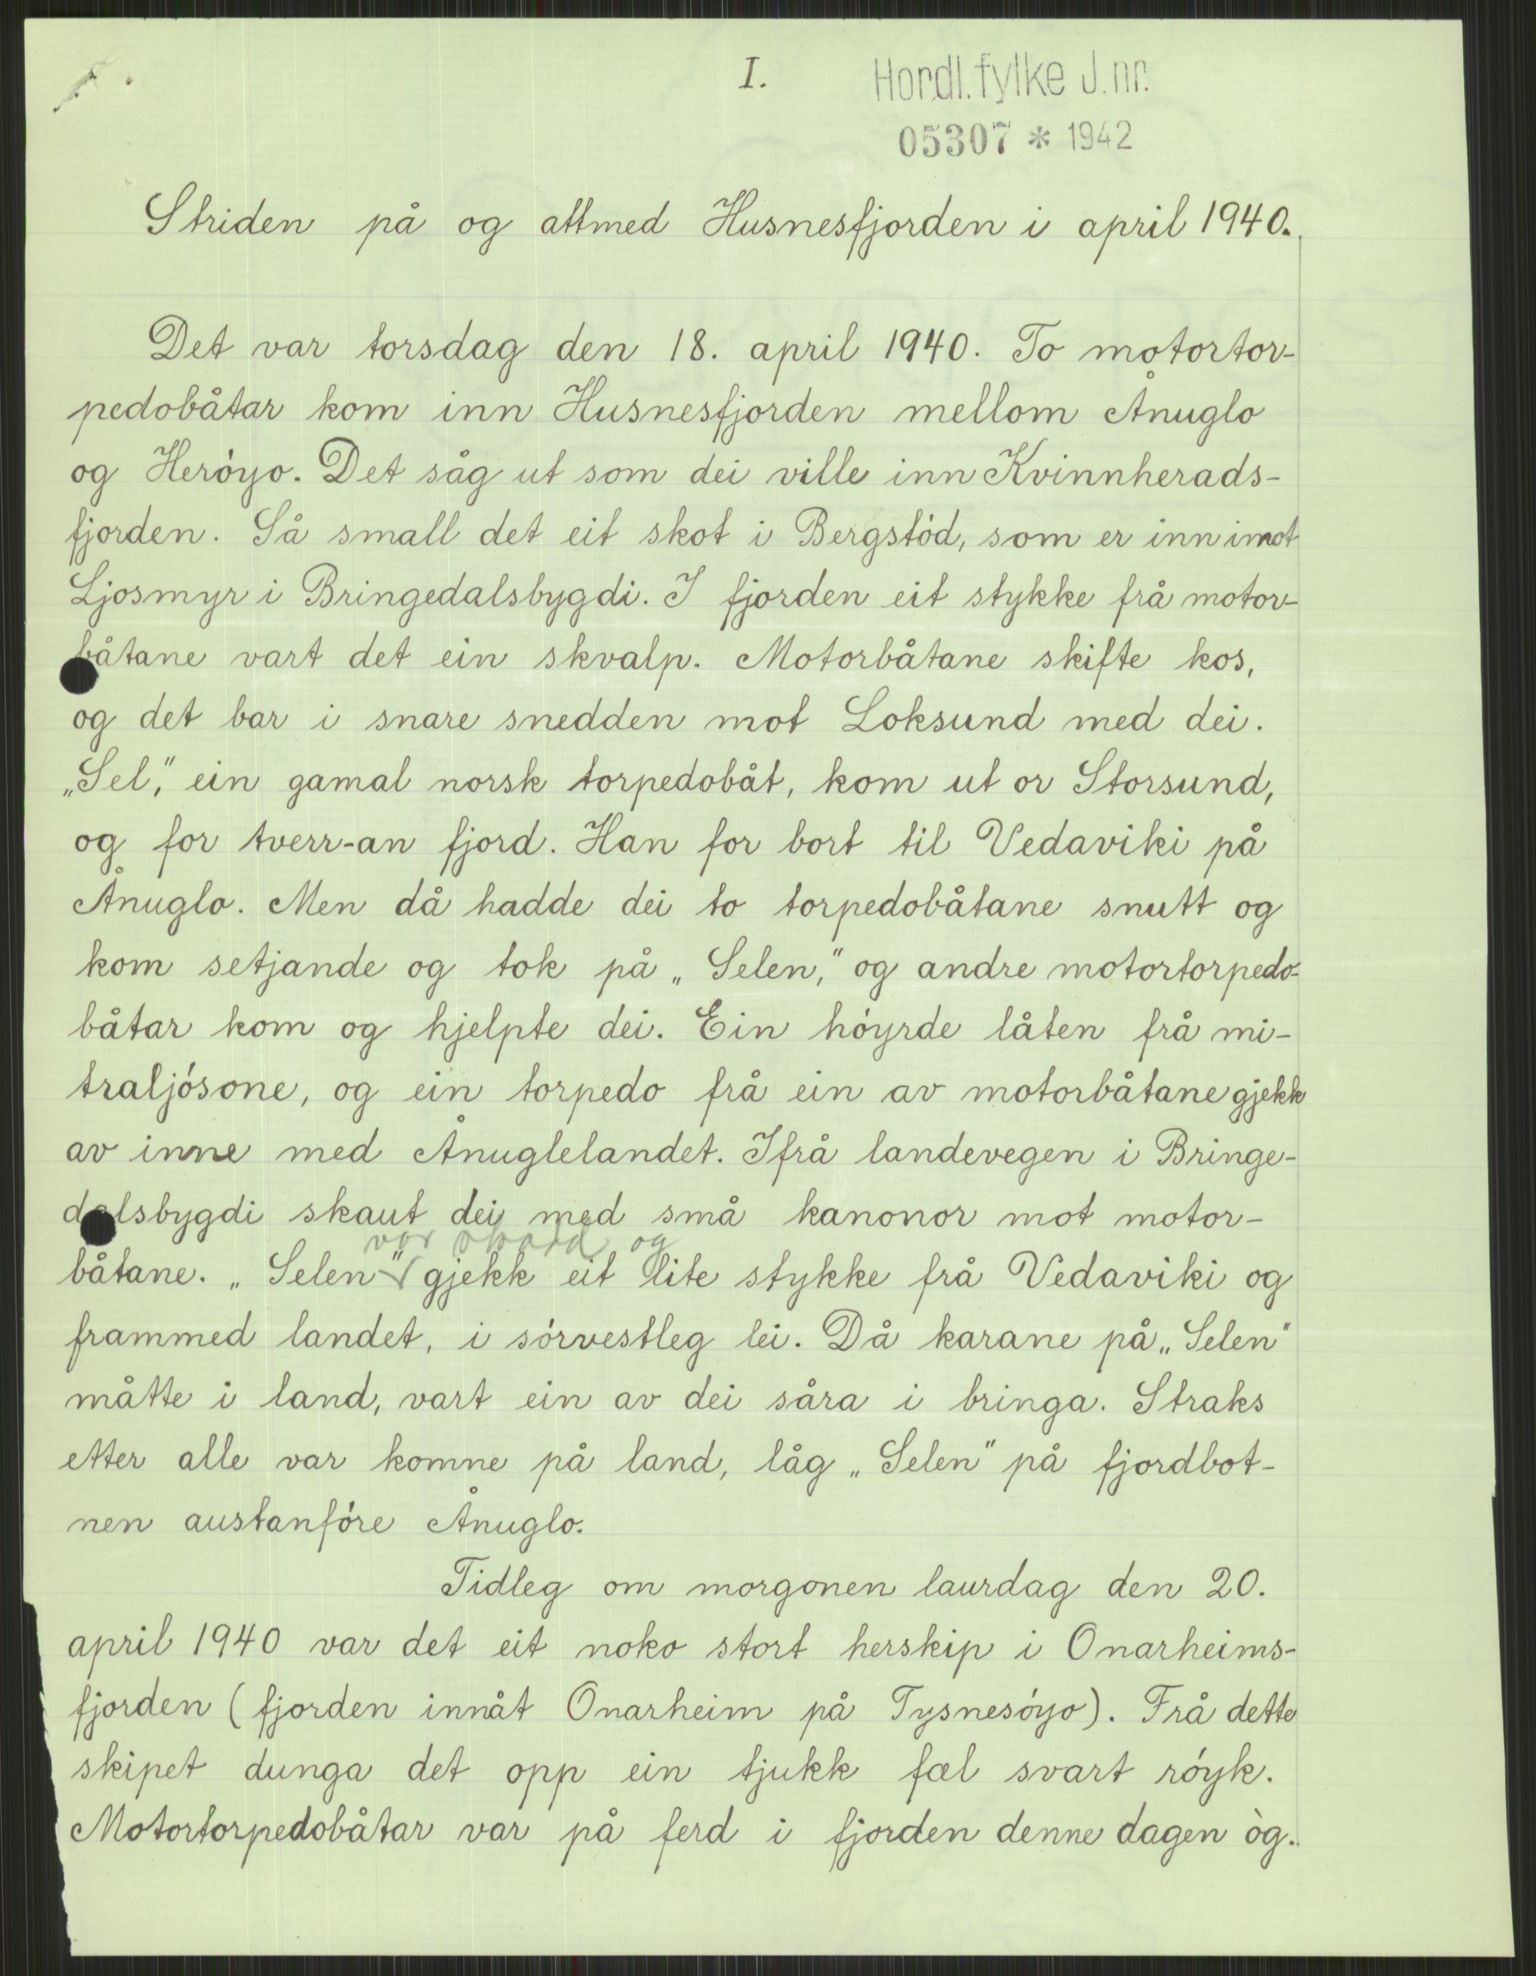 I.
Hordl. fylke J. nr.
05307 * 1942
Striden på og attmed Husnesfjorden i april 1940.
Det var torsdag den 18. april 1940. To motortor-
pedobåtar kom inn Husnesfjorden mellom Ånuglo
og Herøyo. Det såg ut som dei ville inn Kvinnherads-
fjorden. Så small det eit skot i Bergstød, som er inn imot
Ljosmyr i Bringedalsbygdi. I fjorden eit stykke frå motor-
båtane vart det ein skvalp. Motorbåtane skifte kos,
og det bar i snare snedden mot Loksund med dei.
„Sel," ein gamal norsk torpedobåt, kom ut or Storsund,
og for tverr-an fjord. Han for bort til Vedaviki på
Ånuglo. Men då hadde dei to torpedobåtane snutt og
kom setjande og tok på „Selen," og andre motortorpedo-
båtar kom og hjelpte dei. Ein høyrde låten frå mi-
traljøsone, og ein torpedo frå ein av motorbåtane gjekk
av inne med Ånuglelandet. Ifrå landevegen i Bringe-
dalsbygdi skaut dei med små kanonor mot motor-
var skard og
båtane. „Selen" gjekk eit lite stykke frå Vedaviki og
frammed landet, i sørvestleg lei. Då karane på „Selen"
måtte i land, vart ein av dei såra i bringa. Straks
etter alle var komne på land, låg „Selen" på fjordbot-
nen austanføre Ånuglo.
Tidleg om morgonen laurdag den 20.
april 1940 var det eit noko stort herskip i Onarheims-
fjorden (fjorden innåt Onarheim på Tysnesøyo). Frå dette
skipet dunga det opp ein tjukk fæl svart røyk.
Motortorpedobåtar var på ferd i fjorden denne dagen òg.